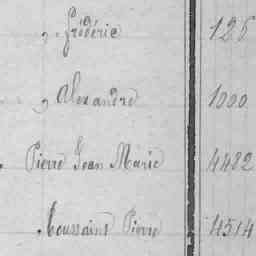 , Frédéric 126
, Alexandre 1000
Pierre Jean Marie 4482
Toussaint Pierre 4514